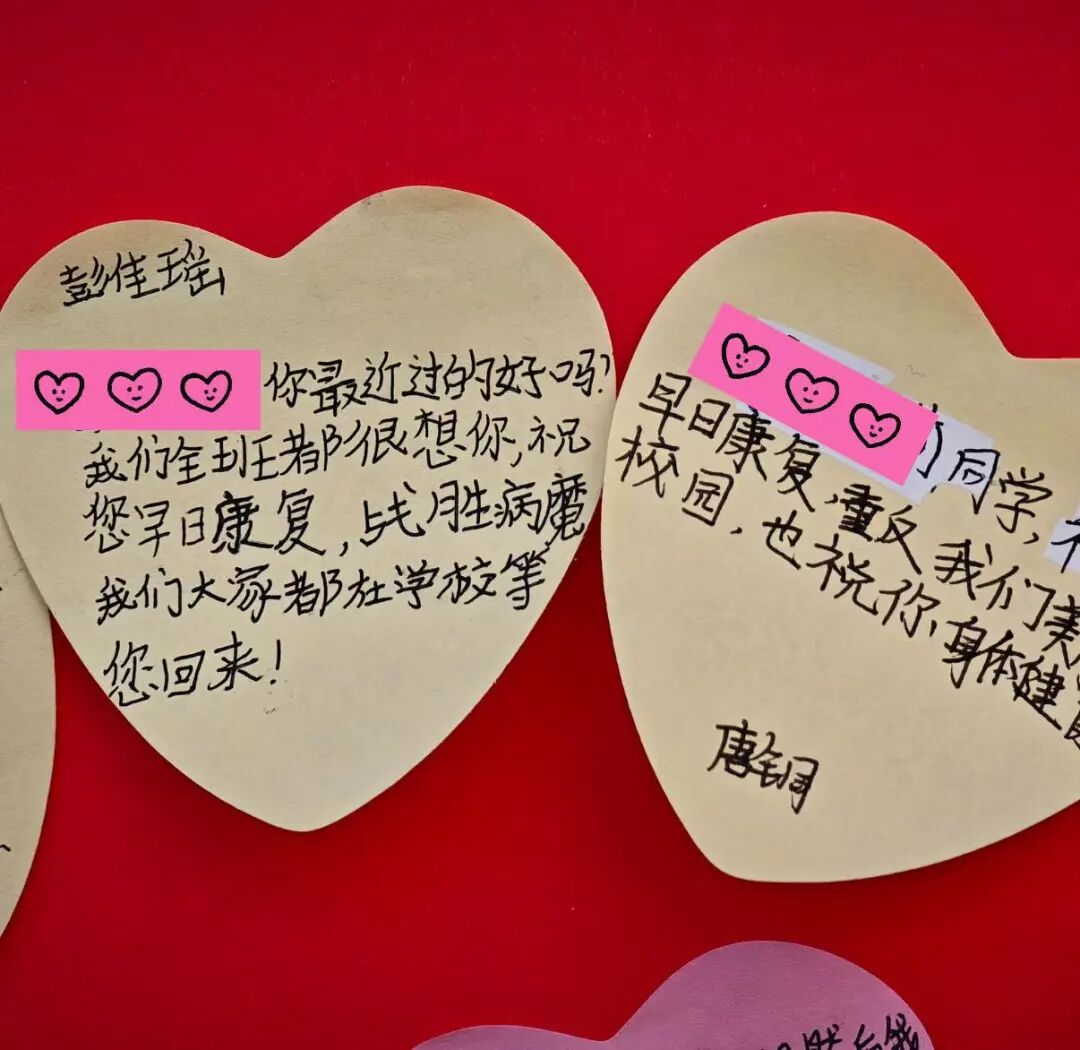 彭佳瑶
你最近过的好吗?
我们全班都很想你,祝
您早日康复,战胜病魔
我们大家都在学校等
您回来!
同学,
早日康复,重反我们美
校园,也祝你身体健
唐